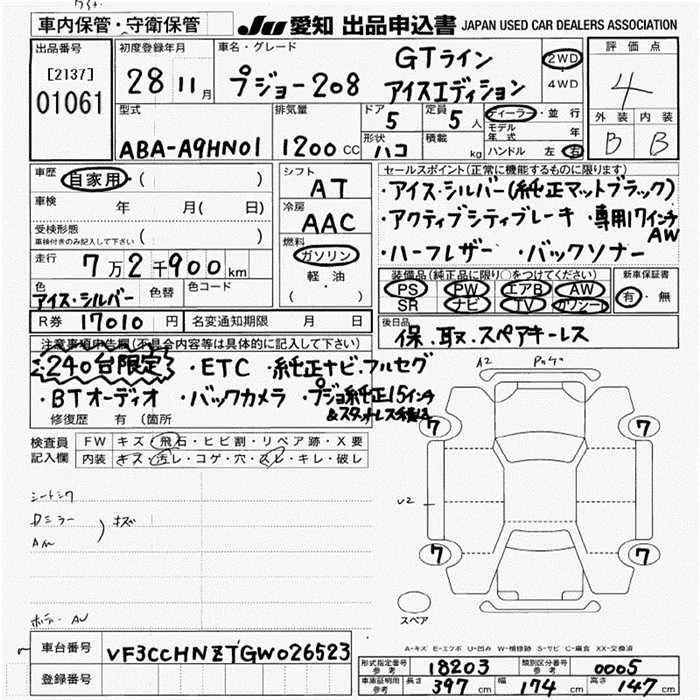 車内保管・守衛保管
JU 愛知 出品申込書 JAPAN USED CAR DEALERS ASSOCIATION
出品番号
[2137]
01061
初度登録年月
28 11月
車名・グレード
プジョー208
GTライン
アイスエディション
2WD
・
4WD
評価点
4
外装 内装
B B
型式
ABA-A9HN01
排気量
1200CC
ドア
5
形状
ハコ
定員
5人
積載
kg
ディーラー・並行
モデル年式 年
ハンドル 左 右
車歴
自家用・( )
車検 年 月( 日)
受検形態
車検付きのみ記入して下さい ( )
走行
7万2千900km
色
アイス・シルバー
色替
色コード
シフト
AT
冷房
AAC
燃料
ガソリン
軽・油
( )
セールスポイント(正常に機能するものに限ります)
・アイス・シルバー(純正マットブラック)
・アクティブシティブレーキ ・専用17インチAW
・ハーフレザー ・バックソナー
装備品(純正品に限り○をつけてください)
PS PW エアB AW
SR ナビ TV カワシート
新車保証書
有・無
R券 17010円
名変通知期限 月 日
後日品
保.取.スペアキーレス
注意事項申告欄(不具合内容等は具体的に記入して下さい)
240台限定 ・ETC ・純正ナビ.フルセグ
・BTオーディオ ・バックカメラ ・プジョ純正15インチ
&スタッドレス積込
修復歴 有 (箇所
検査員
記入欄
FW キズ・飛石・ヒビ割・リペア跡・X要
内装 キズ・汚レ・コゲ・穴・スレ・キレ・破レ
シートシワ
Dミラー
キズ
A2
U2
7 7
7 7
スペア
A-キズ E-エクボ U-凹み W-補修跡 S-サビ C-腐食 XX-交換済
車台番号
VF3CCHNZTGW026523
登録番号
形式指定番号 参考 18203
類別区分番号 参考 0005
車庫証明用 参考 長さ 397cm 幅 174cm 高さ 147cm